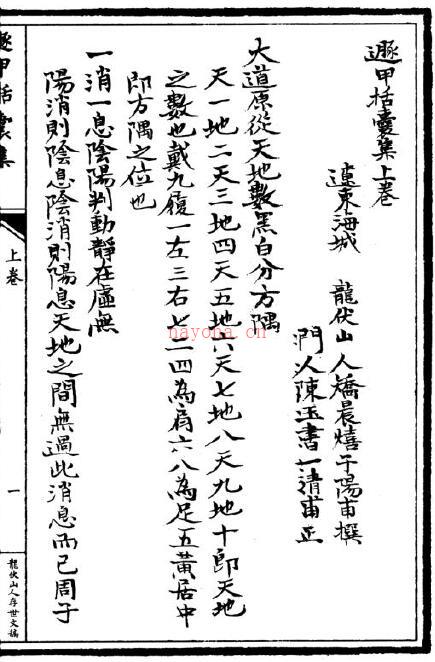 遯甲括囊集上卷
遼東海城　龍伏山人矯晨熺子陽甫撰
門人陳玉書一清甫正
大道原從天地數黑白分方隅
天一地二天三地四天五地六天七地八天九地十即天地
之數也戴九履一左三右七二四為肩六八為足五黃居中
即方隅之位也
一消一息陰陽判動靜在虛無
陽消則陰息陰消則陽息天地之間無過此消息而已周子
遯甲括囊集
上卷
一
龍伏山人存世文稿
nayona.cn